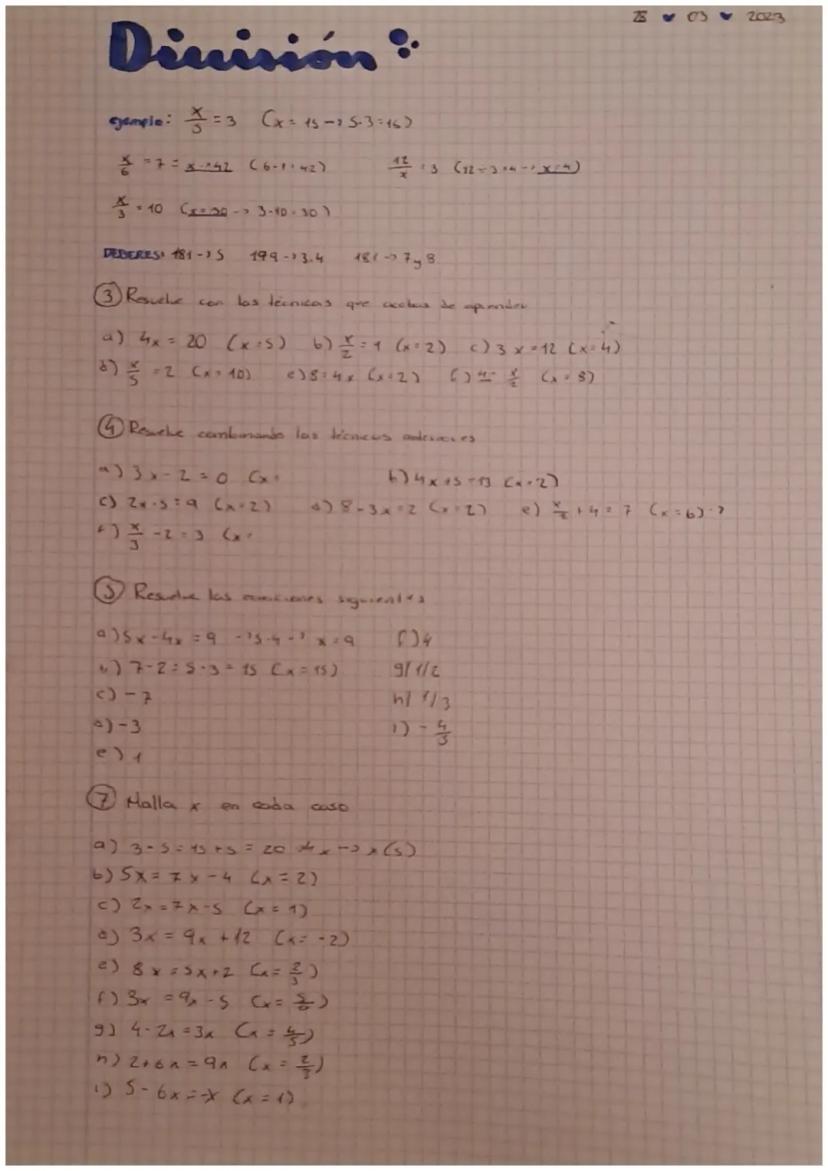 28 ♥ 03 ♥ 2023
División:
ejemplo: x/5 = 3 (x = 15 -> 5·3=15)
x/6 = 7 = x -> 42 (6·7=42) 12/x = 3 (12 = 3·4 -> x=4)
x/3 = 10 (x=30 -> 3·10=30)
DEBERES: 181->5 199->3.4 181->7 y 8
③ Resuelve con las técnicas que acabas de aprender
a) 4x = 20 (x=5) b) x/2 = 1 (x=2) c) 3x=12 (x=4)
d) x/5 = 2 (x=10) e) 8=4x (x=2) f) 4= x/2 (x=8)
④ Resuelve combinando las técnicas anteriores
a) 3x-2=0 (x= b) 4x+5=13 (x=2)
c) 2x·5=9 (x=2) d) 8-3x=2 (x=2) e) +4=7 (x=6)
f) x/3 -2=3 (x=
⑤ Resuelve las ecuaciones siguientes
a) 5x-4x=9 ->5-4-> x=9 f) 4
b) 7-2=5·3=15 (x=15) g) 1/2
c) -7 h) 1/3
d) -3 i) -4/3
e) 1
⑦ Halla x en cada caso
a) 3·5=15+5=20 4x->x(5)
b) 5x=7x-4 (x=2)
c) 2x=7x-5 (x=1)
d) 3x=9x+12 (x=-2)
e) 8x=5x+2 (x=2/3)
f) 3x=9x-5 (x=5/6)
g) 4-2x=3x (x=4/5)
h) 2+6x=9x (x=2/3)
i) 5-6x=-x (x=1)